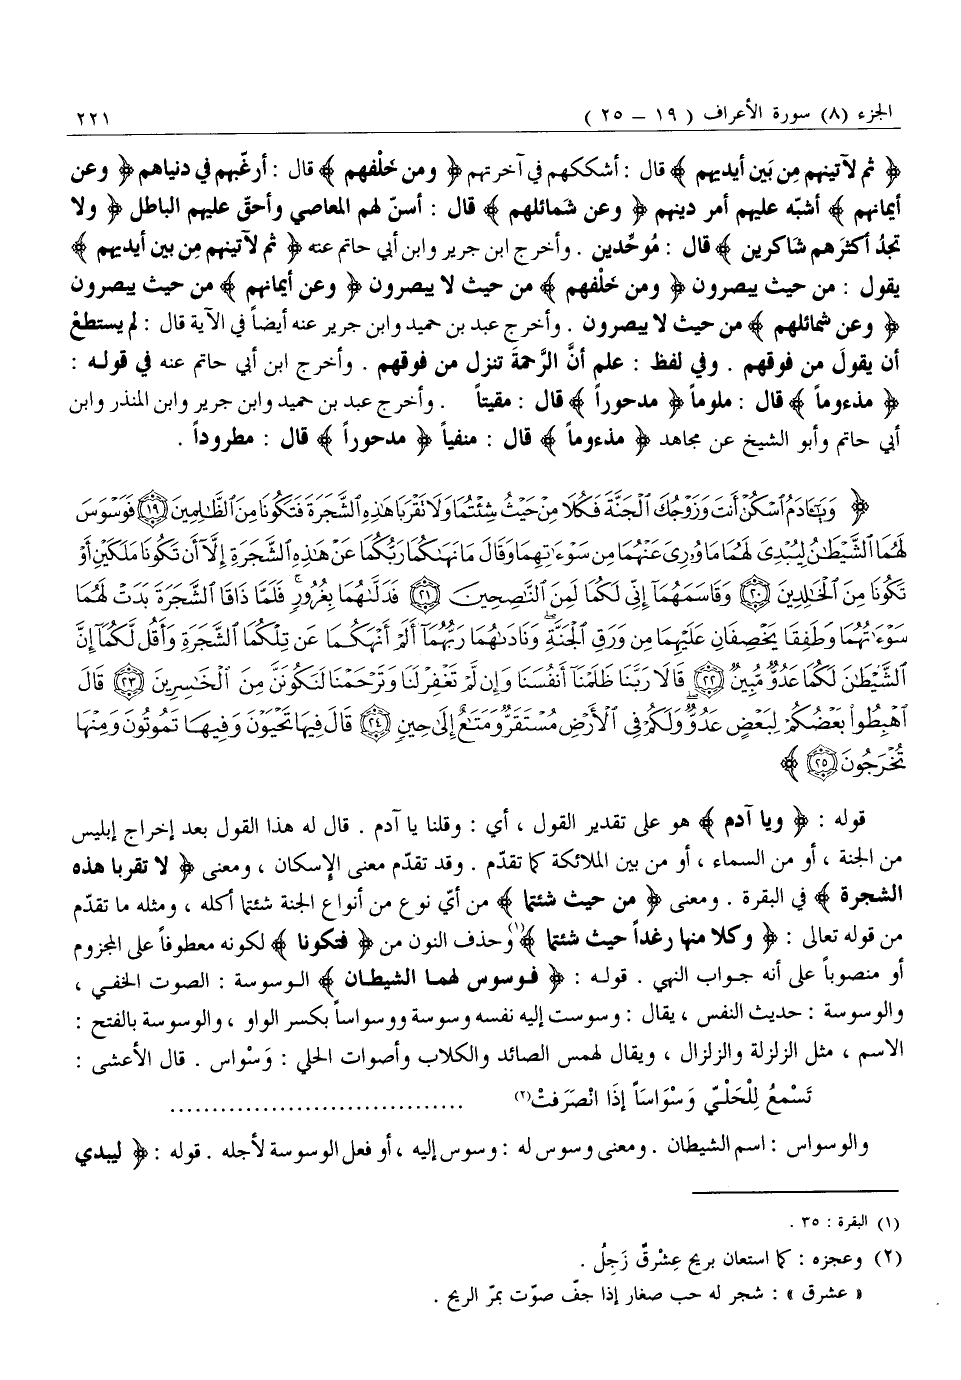 الجزء (٨) سورة الأعراف ( ١٩ – ٢٥ ) ٢٢١
﴿ ثم لآتينهم مِن بَين أيديهم ﴾ قال : أشككهم في آخرتهم ﴿ ومن خَلْفهم ﴾ قال : أرغّبهم في دنياهم ﴿ وعن
أيمانهم ﴾ أشبّه عليهم أمر دينهم ﴿ وعن شمائلهم ﴾ قال : أسنّ لهم المعاصي وأحقّ عليهم الباطل ﴿ ولا
تجدُ أكثرَهم شاكرين ﴾ قال : مُوحِّدين . وأخرج ابن جرير وابن أبي حاتم عنه ﴿ ثم لآتينهم مِن بين أيديهم ﴾
يقول : من حيث يبصرون ﴿ ومن خلْفهم ﴾ من حيث لا يبصرون ﴿ وعن أيمانهم ﴾ من حيث يبصرون
﴿ وعن شمائلهم ﴾ من حيث لا يبصرون . وأخرج عبد بن حميد وابن جرير عنه أيضاً في الآية قال : لم يستطعْ
أن يقولَ من فوقهم . وفي لفظ : علم أنَّ الرَّحمةَ تنزل من فوقهم . وأخرج ابن أبي حاتم عنه في قوله :
﴿ مذءوماً ﴾ قال : ملوماً ﴿ مدحوراً ﴾ قال : مقيتاً . وأخرج عبد بن حميد وابن جرير وابن المنذر وابن
أبي حاتم وأبو الشيخ عن مجاهد ﴿ مذءوماً ﴾ قال : منفياً ﴿ مدحوراً ﴾ قال : مطروداً .
﴿ وَيَٰٓـَٔادَمُ ٱسْكُنْ أَنتَ وَزَوْجُكَ ٱلْجَنَّةَ فَكُلَا مِنْ حَيْثُ شِئْتُمَا وَلَا تَقْرَبَا هَٰذِهِ ٱلشَّجَرَةَ فَتَكُونَا مِنَ ٱلظَّٰلِمِينَ ١٩ فَوَسْوَسَ
لَهُمَا ٱلشَّيْطَٰنُ لِيُبْدِىَ لَهُمَا مَا وُۥرِىَ عَنْهُمَا مِن سَوْءَٰتِهِمَا وَقَالَ مَا نَهَىٰكُمَا رَبُّكُمَا عَنْ هَٰذِهِ ٱلشَّجَرَةِ إِلَّآ أَن تَكُونَا مَلَكَيْنِ أَوْ
تَكُونَا مِنَ ٱلْخَٰلِدِينَ ٢٠ وَقَاسَمَهُمَآ إِنِّى لَكُمَا لَمِنَ ٱلنَّٰصِحِينَ ٢١ فَدَلَّىٰهُمَا بِغُرُورٍ ۚ فَلَمَّا ذَاقَا ٱلشَّجَرَةَ بَدَتْ لَهُمَا
سَوْءَٰتُهُمَا وَطَفِقَا يَخْصِفَانِ عَلَيْهِمَا مِن وَرَقِ ٱلْجَنَّةِ ۖ وَنَادَىٰهُمَا رَبُّهُمَآ أَلَمْ أَنْهَكُمَا عَن تِلْكُمَا ٱلشَّجَرَةِ وَأَقُل لَّكُمَآ إِنَّ
ٱلشَّيْطَٰنَ لَكُمَا عَدُوٌّ مُّبِينٌ ٢٢ قَالَا رَبَّنَا ظَلَمْنَآ أَنفُسَنَا وَإِن لَّمْ تَغْفِرْ لَنَا وَتَرْحَمْنَا لَنَكُونَنَّ مِنَ ٱلْخَٰسِرِينَ ٢٣ قَالَ
ٱهْبِطُوا۟ بَعْضُكُمْ لِبَعْضٍ عَدُوٌّ ۖ وَلَكُمْ فِى ٱلْأَرْضِ مُسْتَقَرٌّ وَمَتَٰعٌ إِلَىٰ حِينٍ ٢٤ قَالَ فِيهَا تَحْيَوْنَ وَفِيهَا تَمُوتُونَ وَمِنْهَا
تُخْرَجُونَ ٢٥ ﴾
قوله : ﴿ ويا آدم ﴾ هو على تقدير القول ، أي : وقلنا يا آدم . قال له هذا القول بعد إخراج إبليس
من الجنة ، أو من السماء ، أو من بين الملائكة كما تقدّم . وقد تقدّم معنى الإسكان ، ومعنى ﴿ لا تقربا هذه
الشجرة ﴾ في البقرة . ومعنى ﴿ من حيث شئتما ﴾ من أيّ نوع من أنواع الجنة شئتما أكله ، ومثله ما تقدّم
من قوله تعالى : ﴿ وكلا منها رغداً حيث شئتما ﴾(١) وحذف النون من ﴿ فتكونا ﴾ لكونه معطوفاً على المجزوم
أو منصوباً على أنه جواب النهي . قوله : ﴿ فوسوس لهما الشيطان ﴾ الوسوسة : الصوت الخفي ،
والوسوسة : حديث النفس ، يقال : وسوست إليه نفسه وسوسة ووسواساً بكسر الواو ، والوسوسة بالفتح :
الاسم ، مثل الزلزلة والزلزال ، ويقال لهمس الصائد والكلاب وأصوات الحلي : وَسْواس . قال الأعشى :
تَسْمعُ لِلْحَلْيِّ وَسْوَاسَاً إذَا انْصَرَفتْ(٢) ..................................
والوسواس : اسم الشيطان . ومعنى وسوس له : وسوس إليه ، أو فعل الوسوسة لأجله . قوله : ﴿ ليبدي
(١) البقرة : ٣٥ .
(٢) وعجزه : كما استعان بريح عِشْرقٌ زَجِلُ .
« عشرق » : شجر له حب صغار إذا جفّ صوّت بمرّ الريح .